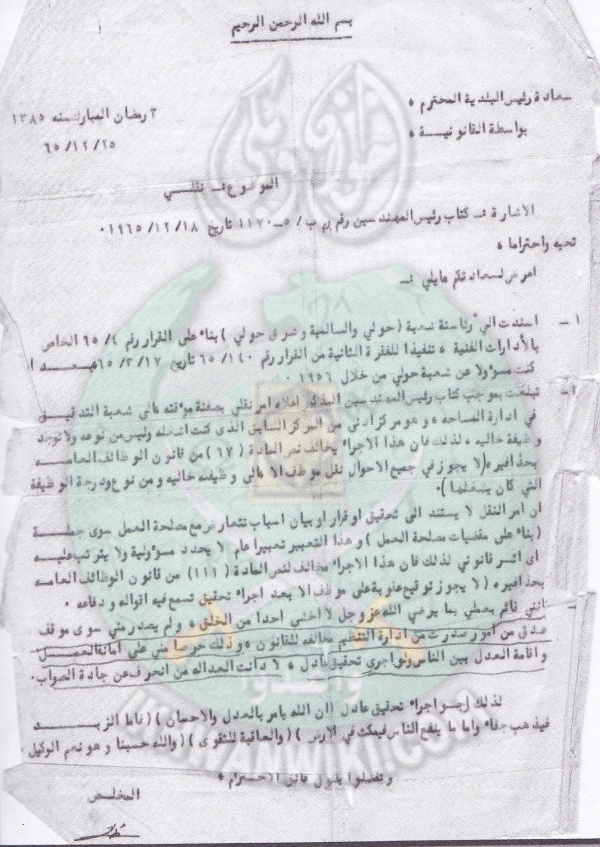 بسم الله الرحمن الرحيم
سعادة رئيس البلدية المحترم ،
٣ رمضان المبارك سنه ١٣٨٥
بواسطة القانونيـة ،
٦٥/١٢/٢٥
الموضوع :ـ نقلـــي
الاشارة :ـ كتاب رئيس المهندسين رقم بم ب/٥ــ١١٧٠ تاريخ ١٩٦٥/١٢/١٨٠
تحيه واحتراما ،
اعرض لسعادتكم مايلي :ـ
١ ــ اسندت الي رئاسة شعبة (حولي والسالمية وشرق حولي) بناء على القرار رقم ٦٥/٤ الخاص
بالأدارات الفنية ، تنفيذا للفقرة الثانية من القرار رقم ٦٥/١٤٠ تاريخ ٦٥/٣/١٧ بعد ان
كنت مسؤولا عن شعبة حولي من خلال ١٩٥٦
٢ــ تبلغت بموجب كتاب رئيس المهندسين المذكور اعلاه امر نقلي بصفة موقته الى شعبة التدقيق
في ادارة المساحه ، وهو مركز ادنى من المركز السابق الذي كنت اشغله وليس من نوعه ولا توجد
وظيفة خاليه ، لذلك فان هذا الاجراء يخالف نص المادة (١٧) من قانون الوظائف العامه
بحذافيره (لا يجوز في جميع الاحوال نقل موظف الا الى وظيفه خاليه ومن نوع ودرجة الوظيفة
التي كان يشغلها) .
ان امر النقل لا يستند الى تحقيق او قرار او بيان اسباب تتعارض مع مصلحة العمل سوى جملة
(بناء على مقتضيات مصلحة العمل) وهذا التعبير تعبيرا عام لا يحدد مسؤولية ولا يترتب عليه
اي اثر قانوني لذلك فان هذا الاجراء مخالف لنص المادة (١١١) من قانون الوظائف العامه
بحذافيره (لا يجوز توقيع عقوبة على موظف الا بعد اجراء تحقيق تسمع فيه اقواله ودفاعه .
انني قائم بعملي بما يرضي الله عز وجل لا اخشى احدا من الخلق ، ولم يصدر مني سوى موقف
صدق من أمور صدرت من ادارة التنظيم مخالفه للقانون ، وذلك حرصا مني على امانة العمل
واقامة العدل بين الناس ولو اجري تحقيق عادل ، لادانت العداله من انحرف عن جادة الصواب .
لذلك ارجو اجراء تحقيق عادل (ان الله يامر بالعدل والاحسان) (فاما الزبــد
فيذهب جفاء واما ما ينفع الناس فيمكث في الارض) (والعاقبة للتقوى) (والله حسبنا وهو نعم الوكيل .
وتفضلوا بقبول فائق الاحترام ،
المخلـــص
IKHWANWIKI.COM